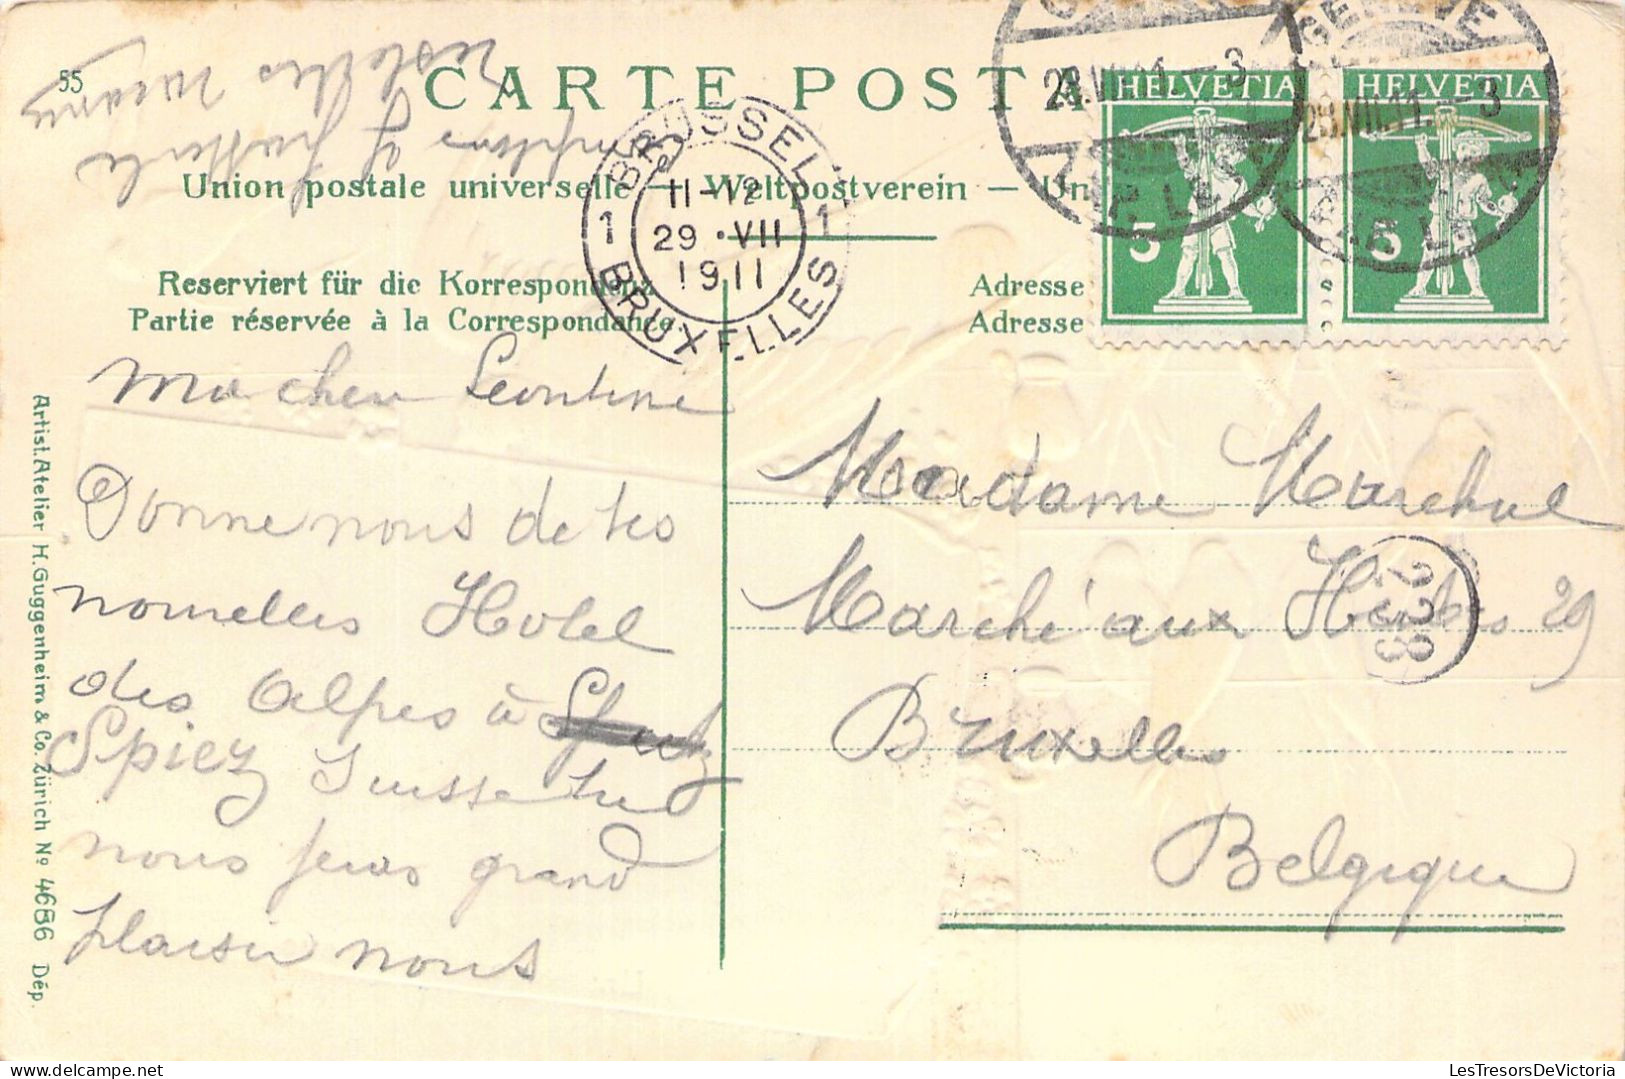 55
CARTE POSTA
Union postale universelle — Weltpostverein — Un
Reserviert für die Korrespondenz
Partie réservée à la Correspondance
Adresse
Adresse
HELVETIA
5
HELVETIA
5
GENÈVE
28.VII.11.–3
28.VII.11.–3
BRUSSEL
11-12
29 · VII
1911
1 1
BRUXELLES
Ma cher Leontine
Donne nous de tes
nouvelles Hotel
des Alpes à
Spiez Suisse tu
nous feras grand
plaisir nous
Madame Marchal
Marché aux Herbes 29
Bruxelles
Belgique
Artist. Atelier H. Guggenheim & Co. Zürich No 4686 Dép.
LesTresorsDeVictoria